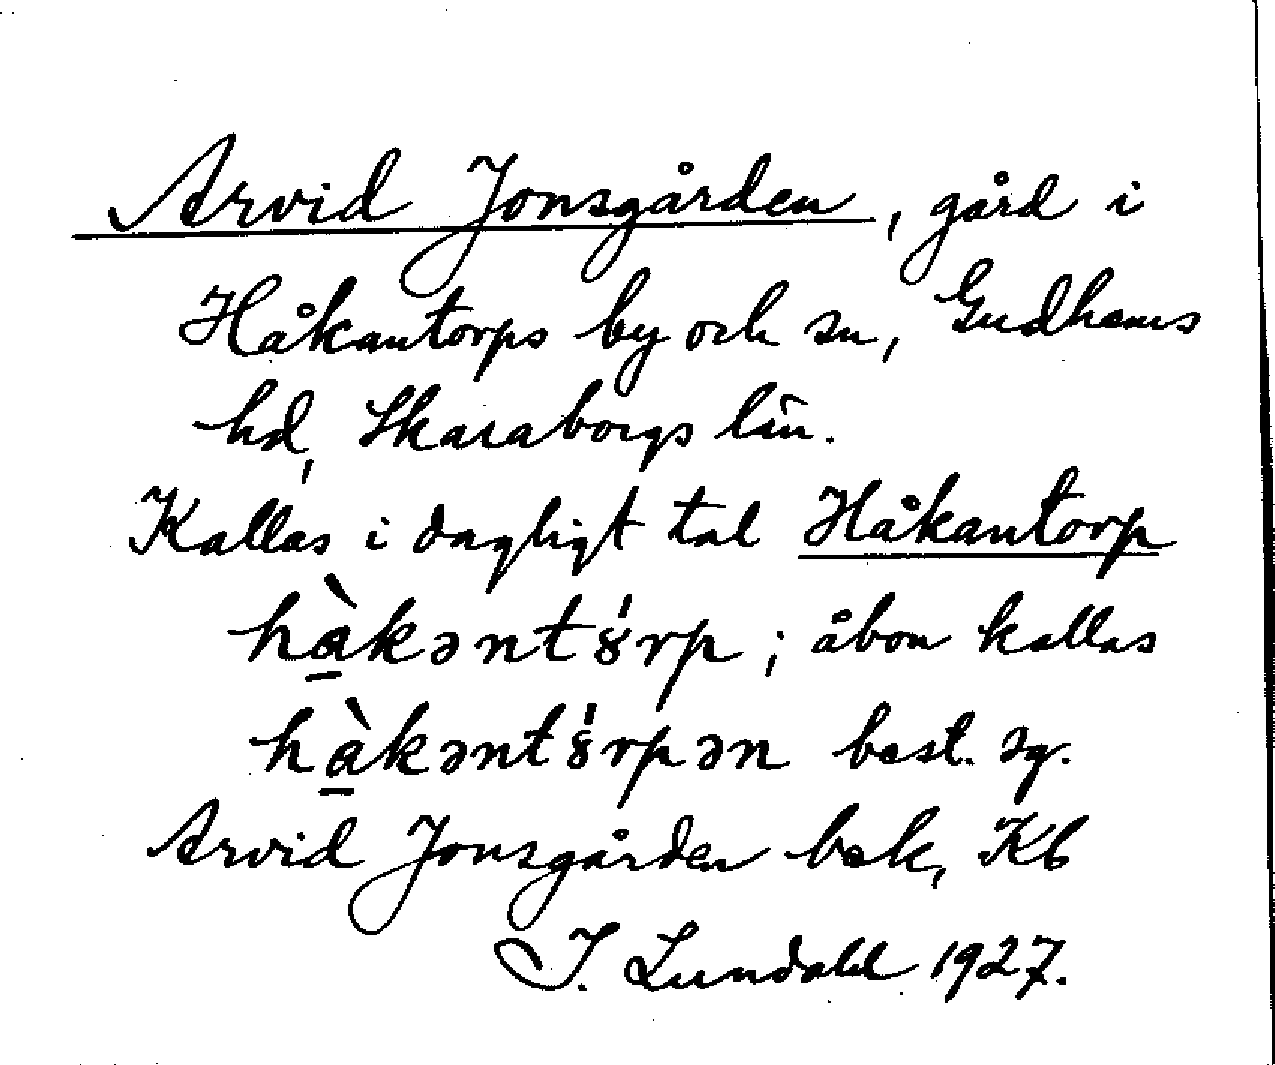 Arvid Jonsgården, gård i
Håkantorps by och sn, Gudhems
hd, Skaraborgs län.
Kallas i dagligt tal Håkantorp
hà̱kəntȣ́rp; åbon kallas
hà̱kəntȣ́rpən best. sg.
Arvid Jonsgården bek, Kb
I. Lundahl 1927.